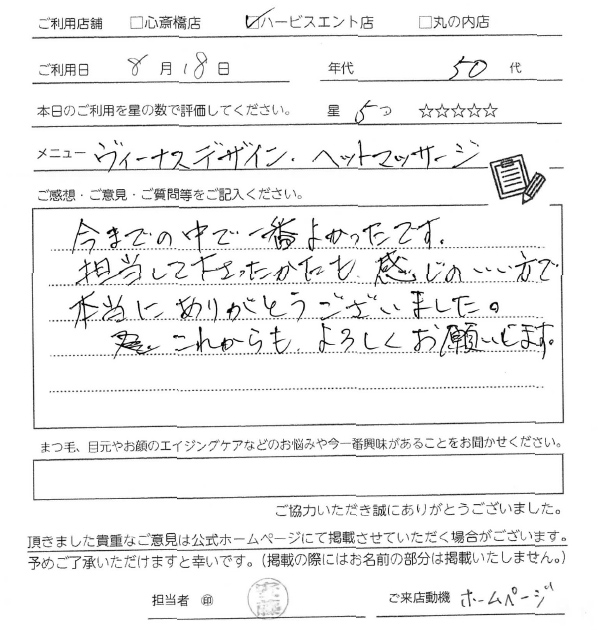 ご利用店舗 □心斎橋店 ☑ハービスエント店 □丸の内店
ご利用日 8月18日 年代 50代
本日のご利用を星の数で評価してください。 星 5つ ☆☆☆☆☆
メニュー ヴィーナスデザイン・ヘットマッサージ
ご感想・ご意見・ご質問等をご記入ください。
今までの中で一番よかったです。
担当して下さったかたも、感じのいい方で
本当にありがとうございました。
これからも、よろしくお願いします。
まつ毛、目元やお顔のエイジングケアなどのお悩みや今一番興味があることをお聞かせください。
ご協力いただき誠にありがとうございました。
頂きました貴重なご意見は公式ホームページにて掲載させていただく場合がございます。
予めご了承いただけますと幸いです。（掲載の際にはお名前の部分は掲載いたしません。）
担当者 ㊞ ご来店動機 ホームページ